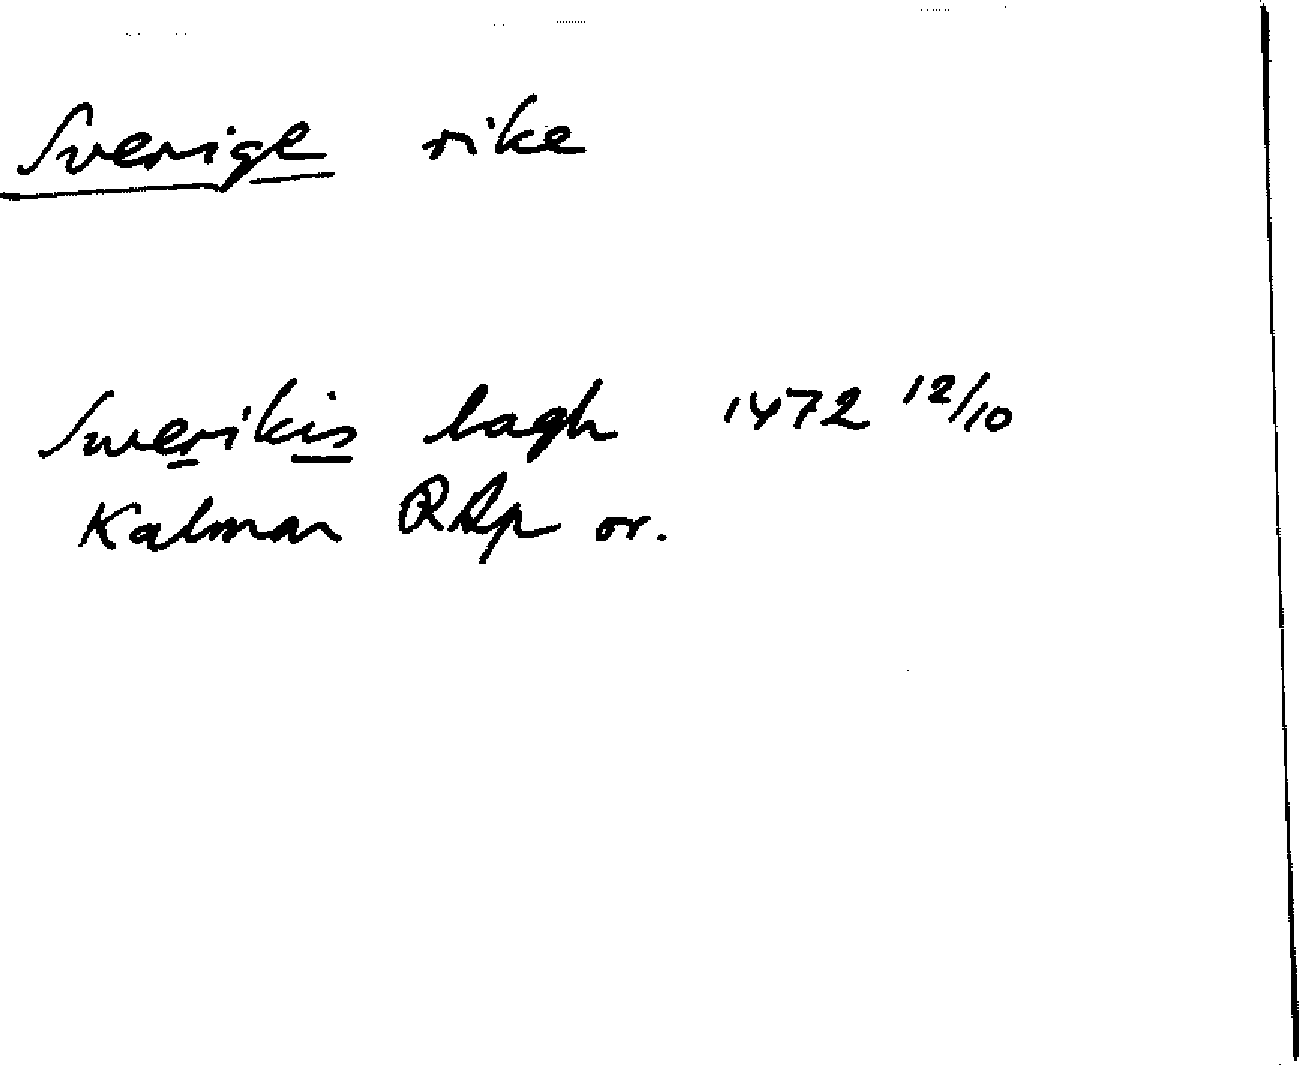 Sverige rike
Swerikis lagh 1472 12/10
Kalmar RAp or.